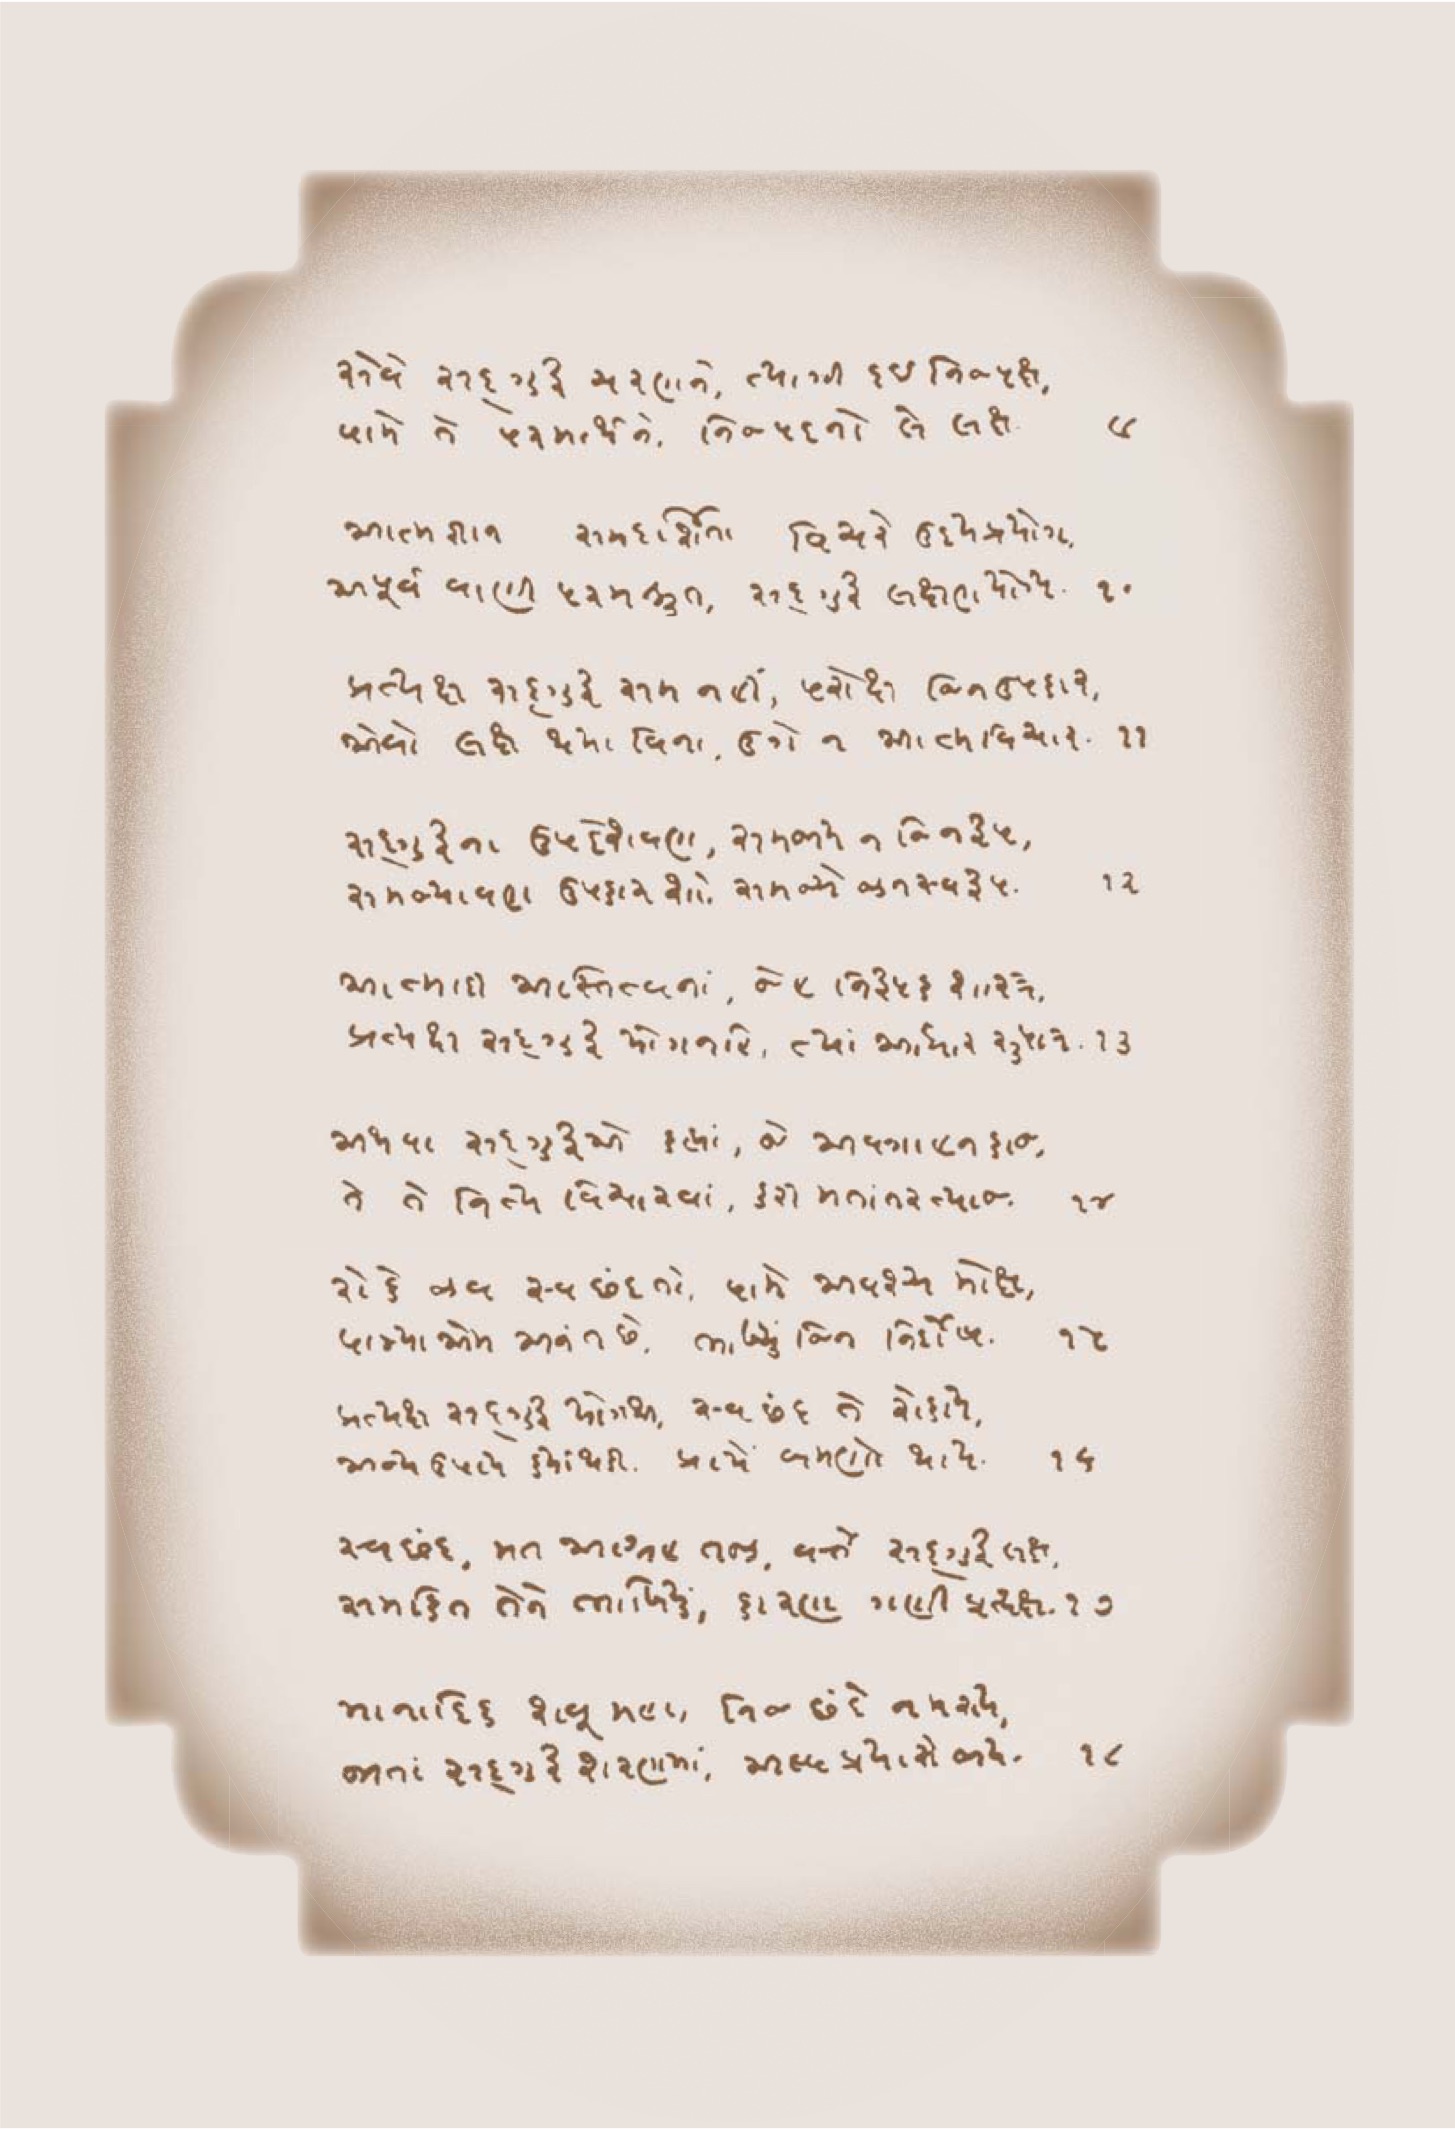 સેવે સદ્ગુરૂ ચરણને, ત્યાગી દઈ નિજપક્ષ,
પામે તે પરમાર્થને, નિજપદનો લે લક્ષ. ૯
આત્મજ્ઞાન સમદર્શિતા વિચરે ઉદયપ્રયોગ,
અપૂર્વ વાણી પરમશ્રુત, સદ્ગુરૂ લક્ષણ યોગ્ય. ૧૦
પ્રત્યક્ષ સદ્ગુરૂ સમ નહીં, પરોક્ષ જિન ઉપકાર,
એવો લક્ષ થયા વિના, ઉગે ન આત્મવિચાર. ૧૧
સદ્ગુરૂના ઉપદેશવણ, સમજાય ન જિનરૂપ,
સમજ્યાવણ ઉપકાર શો, સમજ્યે જીનસ્વરૂપ. ૧૨
આત્માદી અસ્તિત્વનાં, જેહ નિરૂપક શાસ્ત્ર,
પ્રત્યક્ષ સદ્ગુરૂ યોગ નહિ, ત્યાં આધાર સુપાત્ર. ૧૩
અથવા સદ્ગુરૂએ કહ્યાં, જે અવગાહન કાજ,
તે તે નિત્ય વિચારવાં, કરી મતાંતર ત્યાજ. ૧૪
રોકે જીવ સ્વછંદ તો, પામે અવશ્ય મોક્ષ,
પામ્યા એમ અનંત છે, ભાખ્યું જિન નિર્દોષ. ૧૫
પ્રત્યક્ષ સદ્ગુરૂ યોગથી, સ્વછંદ તે રોકાય,
અન્ય ઉપાય કર્યાંથકી, પ્રાયે બમણો થાય. ૧૬
સ્વછંદ, મત આગ્રહ તજી, વર્ત્તે સદ્ગુરૂ લક્ષ,
સમકિત તેને ભાખિયું, કારણ ગણી પ્રત્યક્ષ. ૧૭
માનાદિક શત્રુ મહા, નિજ છંદે ન મરાય,
જાતાં સદ્ગુરૂ શરણમાં, અલ્પ પ્રયાસે જાય. ૧૮